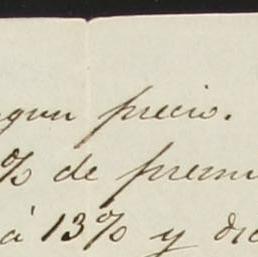 egun precio.
% de premi
á 13% y die